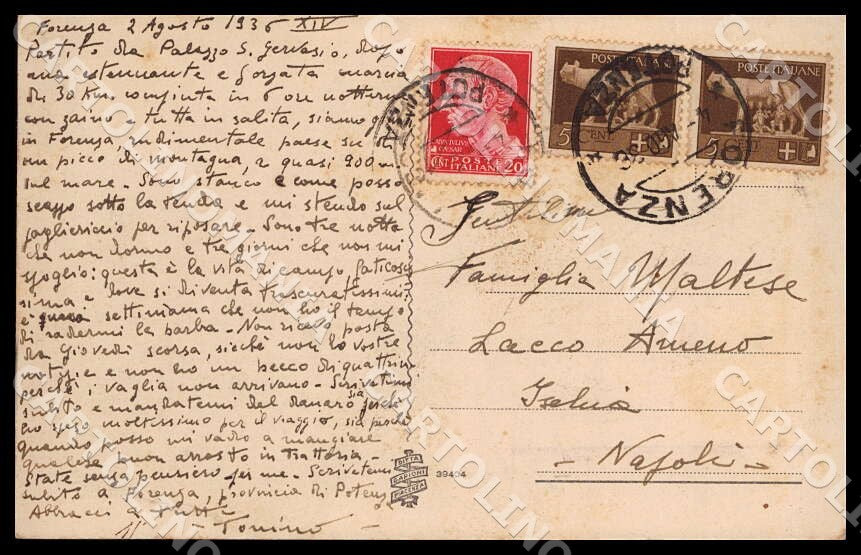 Forenza 2 Agosto 1936 XIV
Partito da Palazzo S. Gervasio, dopo
una estenuante e forzata marcia
di 30 Km. compiuta in 6 ore notturne
con zaino e tutta in salita, siamo
in Forenza, rudimentale paese su
un picco di montagna, a quasi 900 m.
sul mare - Sono stanco e come posso
scappo sotto la tenda e mi stendo sul
pagliericcio per riposare - Sono tre notti
che non dormo e tre giorni che non mi
spoglio: questa è la vita di campo faticosis
sima e dove si diventa trascuratissimi:
è settimana che non ho il tempo
di radermi la barba - Non ricevo posta
da Giovedì scorso, sicché non ho vostre
notizie e non ho un becco di quattrino
perché i vaglia non arrivano - Scrivetemi
subito e mandatemi del danaro sia perché
ho speso moltissimo per il viaggio, sia perché
quando posso mi vado a mangiare
qualche buon arrosto in trattoria
State senza pensiero per me - Scrivetemi
subito a Forenza, provincia di Potenza
Abbracci a tutti
Tonino
POSTE ITALIANE
50 CENT
POSTE ITALIANE
50
DIVVS IVLIVS
CAESAR
CENT POSTE 20
ITALIANE
POTENZA
FORENZA
Famiglia Maltese
Lacco Ameno
Ischia
- Napoli -
DITTA
PIACENZA
39404
CARTOLINOMANIA